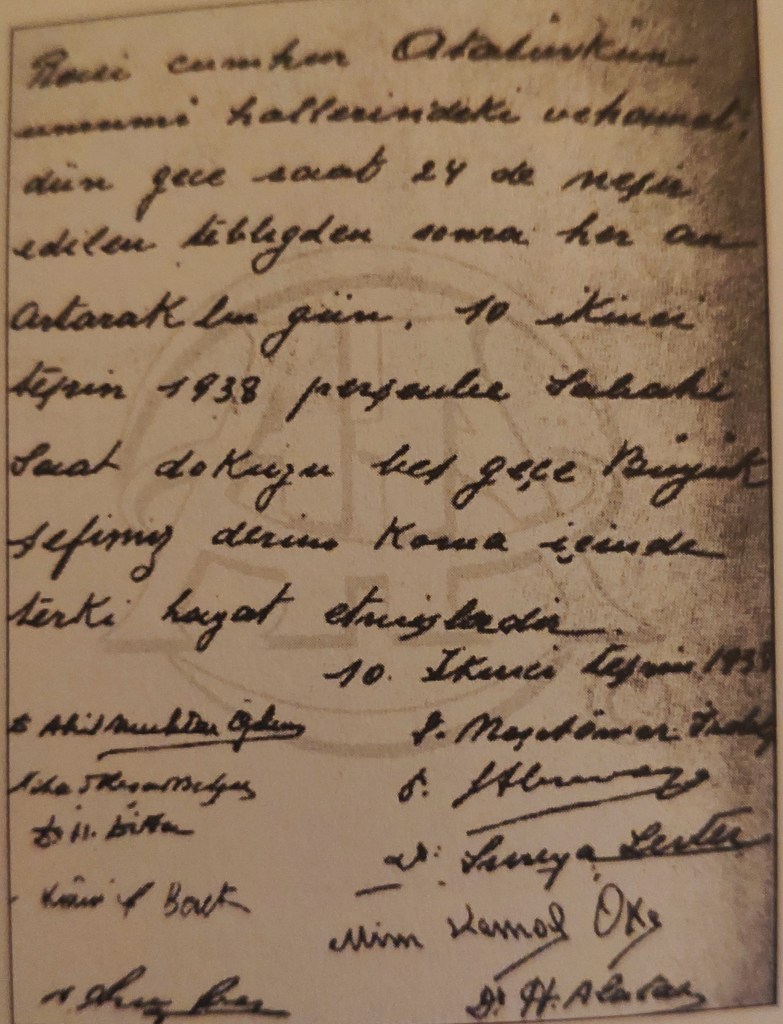 Reisi cumhur Atatürkün
umumi hallerindeki vehamet
dün gece saat 24 de neşir
edilen tebliğden sonra her an
artarak bu gün, 10 ikinci
teşrin 1938 perşembe sabahı
saat dokuzu beş geçe Büyük
şefimiz derin koma içinde
terki hayat etmişlerdir.
10. İkinci teşrin 1938
Akil Muhtar Özden
Dr. Neşet Ömer İrdelp
Nihad Reşad Belger
Dr. H. Diker
Dr. Süreya Serter
Mim Kemal Öke
Dr. A. Abravaya